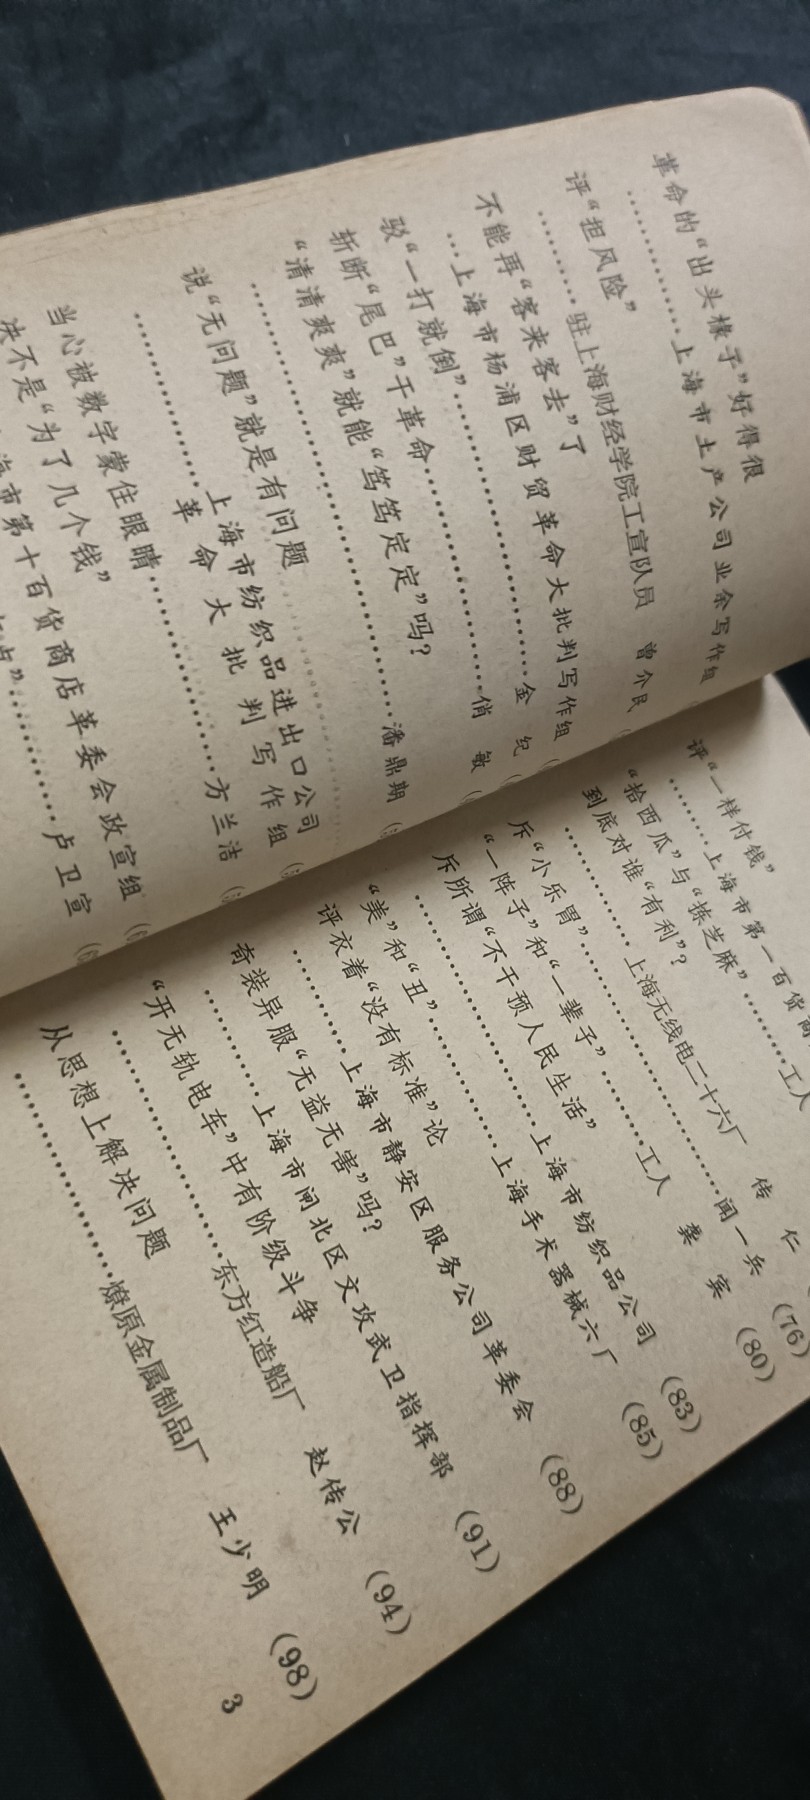 革命的“出头椽子”好得很
…………上海市土产公司业余写作组
评“担风险”
………驻上海财经学院工宣队员 曾介民
不能再“客来客去”了
…上海市杨浦区财贸革命大批判写作组
驳“一打就倒”………………………金 纪
斩断“尾巴”干革命…………………俏 敏
“清清爽爽”就能“笃笃定定”吗?
………………………………………潘鼎期
说“无问题”就是有问题
………………上海市纺织品进出口公司
革命大批判写作组
当心被数字蒙住眼睛………………方兰洁
决不是“为了几个钱”
海市第十百货商店革委会政宣组
点”……………卢卫宣
评“一样付钱”
………上海市第一百货商
“拾西瓜”与“拣芝麻”………工人
到底对谁“有利”?
……………上海无线电二十六厂 传 仁 (76)
斥“小乐胃”…………………………闻一兵 (80)
“一阵子”和“一辈子”………工人 龚 宾 (83)
斥所谓“不干预人民生活”
………………………上海市纺织品公司 (85)
“美”和“丑”……………上海手术器械六厂
评衣着“没有标准”论
…………上海市静安区服务公司革委会 (88)
奇装异服“无益无害”吗?
…………上海市闸北区文攻武卫指挥部 (91)
“开无轨电车”中有阶级斗争
………………东方红造船厂 赵传公 (94)
从思想上解决问题
……………………燎原金属制品厂 王少明 (98)
3